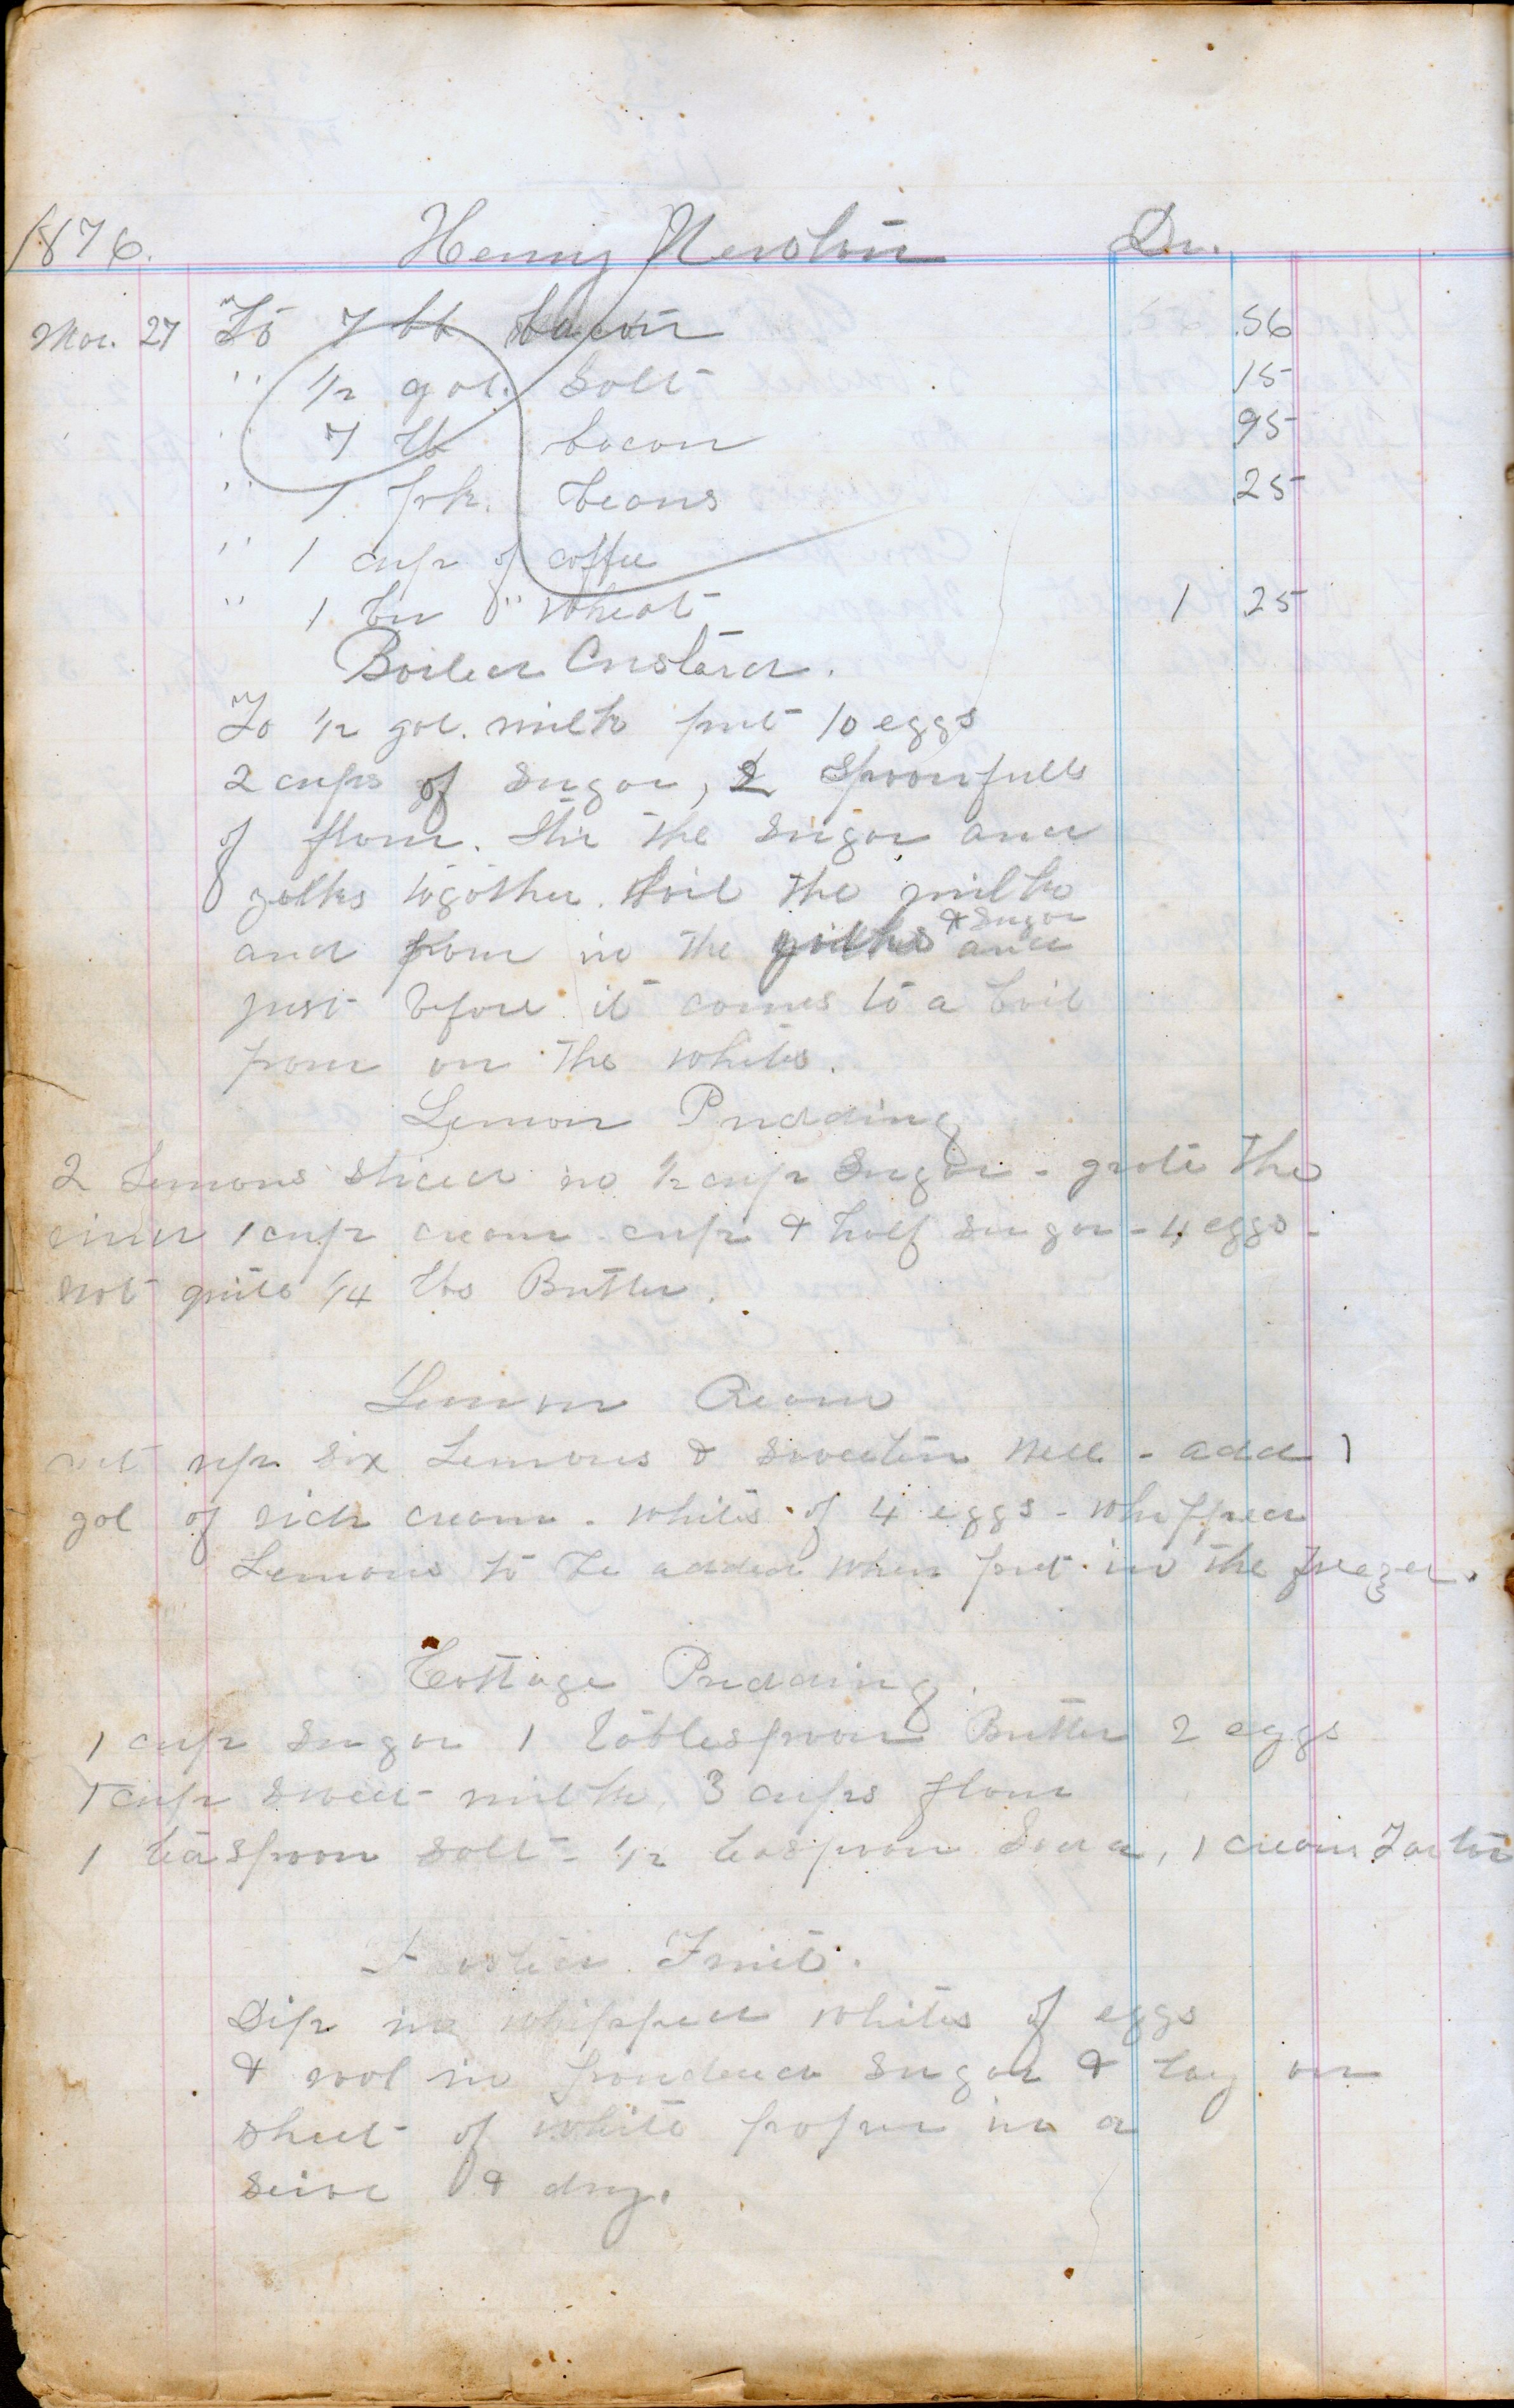 1876. Henry Newlin Dr.
Mar. 27 To 7 lb bacon .56
" 1/2 gal. Salt 15
" 7 lb bacon 95
" 1 pk. beans 25
" 1 cup of coffee
" 1 bu " wheat 1 25
Boiled Custard.
To 1/2 gal. milk put 10 eggs
2 cups of sugar, 2 spoonfulls
of flour. Stir the sugar and
yolks together. boil the milk
and pour in the yolks & sugar and
just before it comes to a boil
pour on the whites.
Lemon Pudding
2 Lemons sliced in 1/2 cup sugar - grate the
rind 1 cup cream - cup & half sugar - 4 eggs -
not quite 1/4 lbs Butter.
Lemon Cream
up six Lemons & sweeten well - add 1
gal of rich cream - whites of 4 eggs - whipped
Lemons to be added when put in the frezer.
Cottage Pudding.
1 cup sugar 1 tablespoon Butter 2 eggs
1 cup sweet milk, 3 cups flour
1 teaspoon salt - 1/2 teaspoon Soda, 1 cream Tartar
Fruit.
Dip in whipped whites of eggs
& rool in poudered sugar & lay on
sheet of white paper in a
seive & dry.